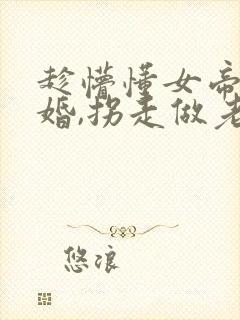 趁懵懂女帝
婚,拐走做老
悠浪